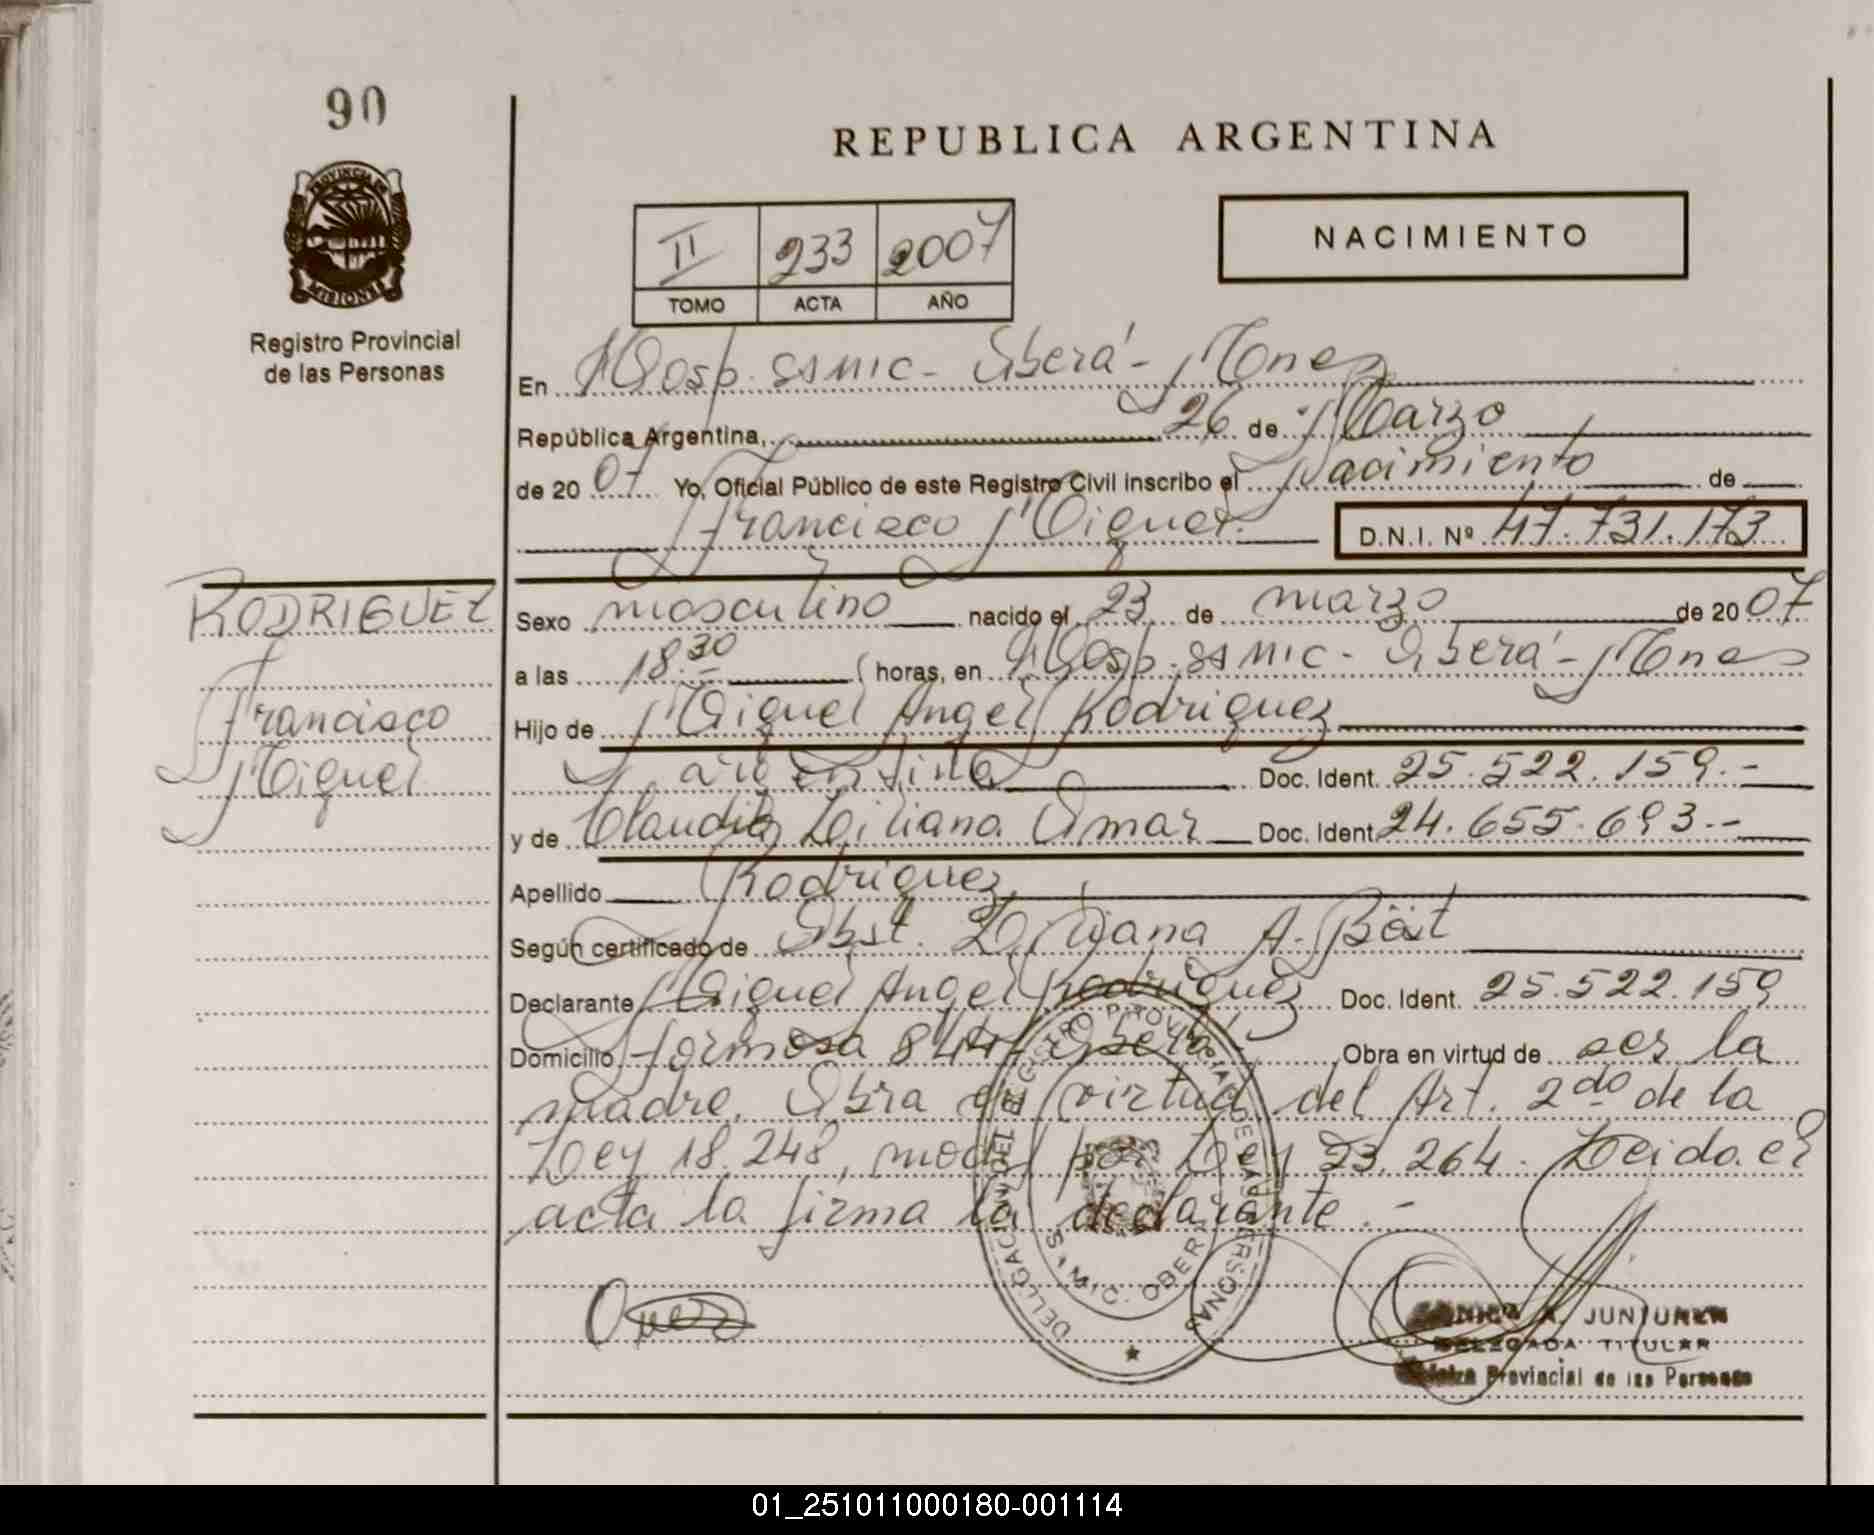 90
REPUBLICA ARGENTINA
NACIMIENTO
II 233 2007
TOMO ACTA AÑO
PROVINCIA DE
MISIONES
Registro Provincial
de las Personas
En Hosp. SSMIC - Oberá - Mnes
República Argentina, 26 de Marzo
de 20 07 Yo, Oficial Público de este Registro Civil inscribo el Nacimiento de
Francisco Miguel D.N.I. Nº 47.731.173
RODRIGUEZ
Francisco
Miguel
Sexo masculino nacido el 23 de marzo de 20 07
a las 18.30 horas, en Hosp. SSMIC - Oberá - Mnes
Hijo de Miguel Angel Rodriguez
argentina Doc. Ident. 25.522.159.-
y de Claudia Liliana Amar Doc. Ident. 24.655.693.-
Apellido Rodriguez
Según certificado de Obst. A. Böst
Declarante Miguel Angel Rodriguez Doc. Ident. 25.522.159
Domicilio formosa 844 Oberá Obra en virtud de ser la
madre. Obra en virtud del Art. 2do de la
Ley 18.248, mod por Ley 23.264. Leida el
acta la firma la declarante.-
REGISTRO PROVINCIAL DE LAS PERSONAS
DELEGACION
OBERÁ
JUNJUREN
DELEGADA TITULAR
Provincial de las Personas
01_251011000180-001114